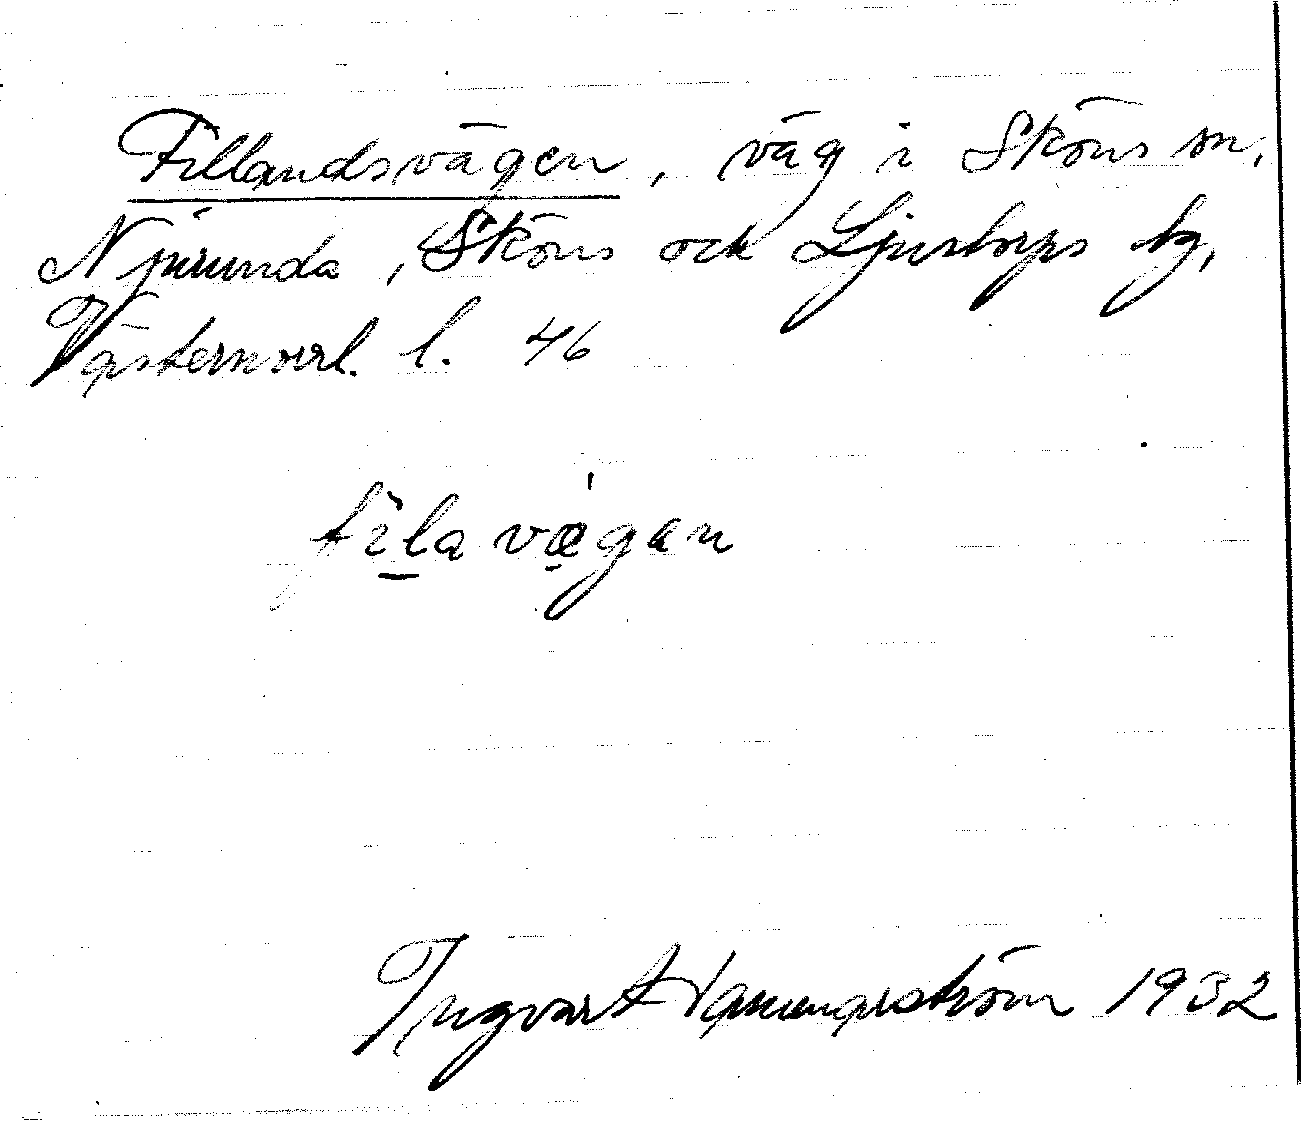 Fillandsvägen, väg i Sköns sn,
Njurunda, Sköns och Ljustorps tg,
Västernorrl. l. 46
fìlavægan
Ingvar Hammarström 1932